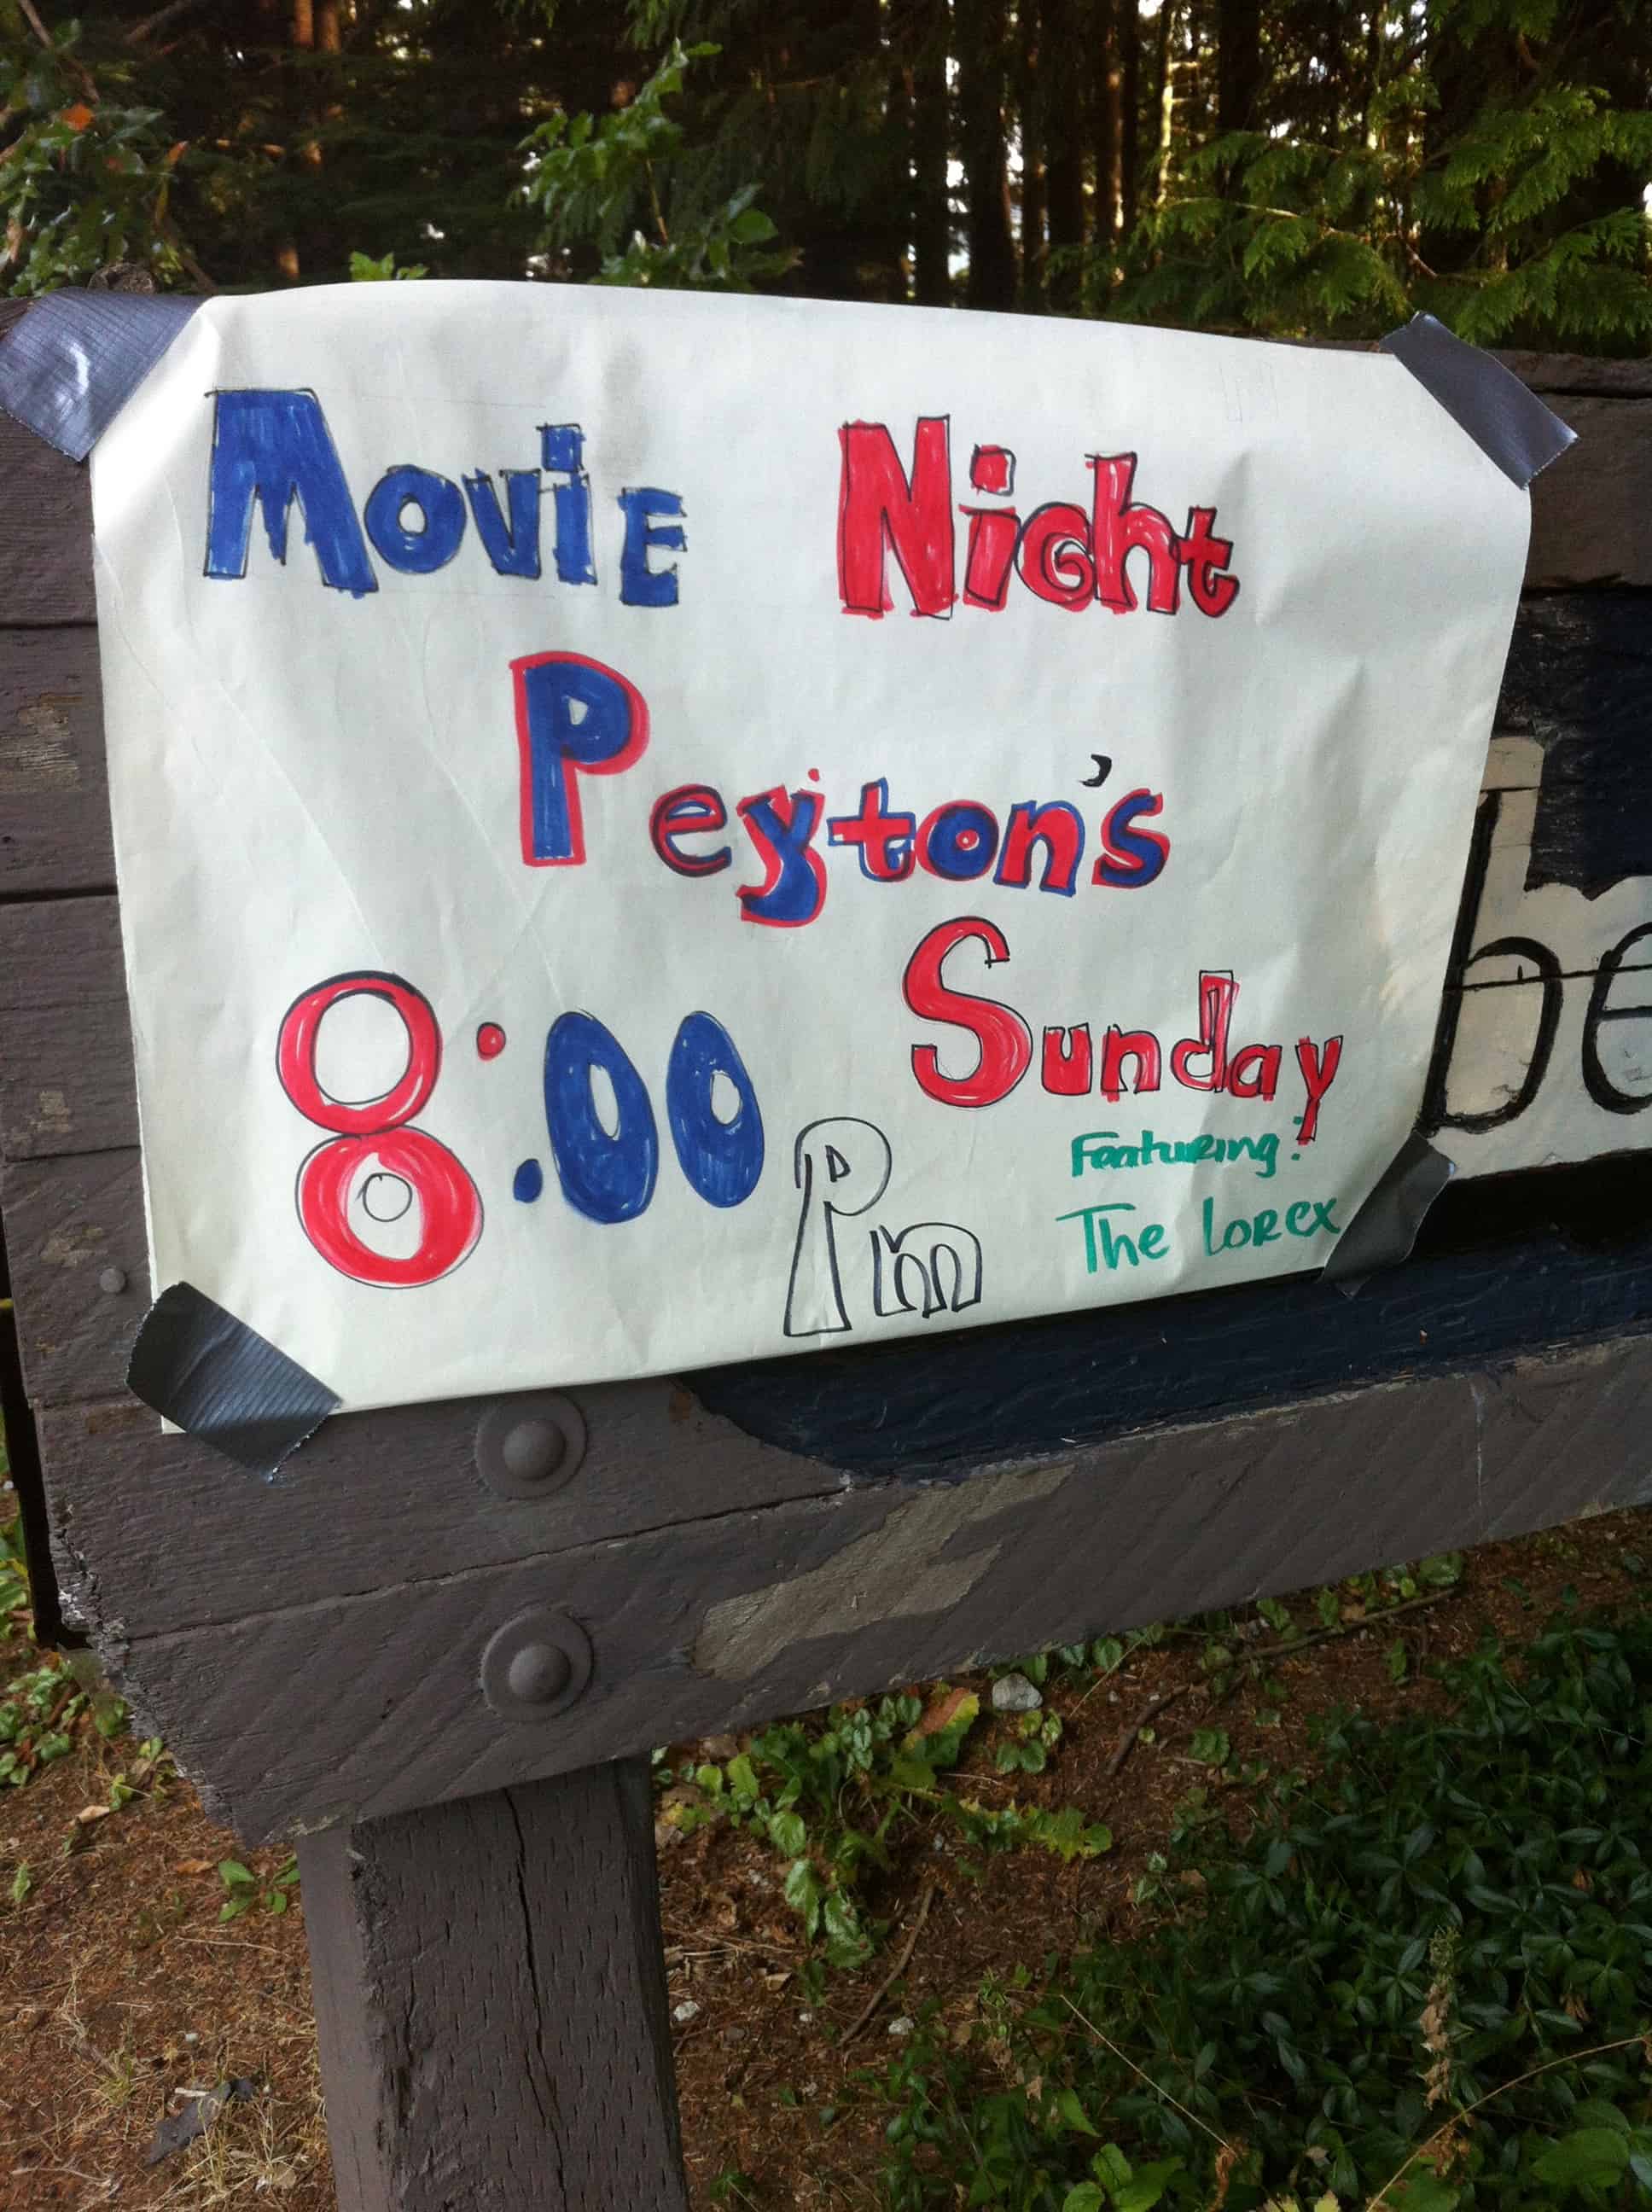 Movie Night
Peyton's
8:00 Pm Sunday
Featuring:
The Lorex
be